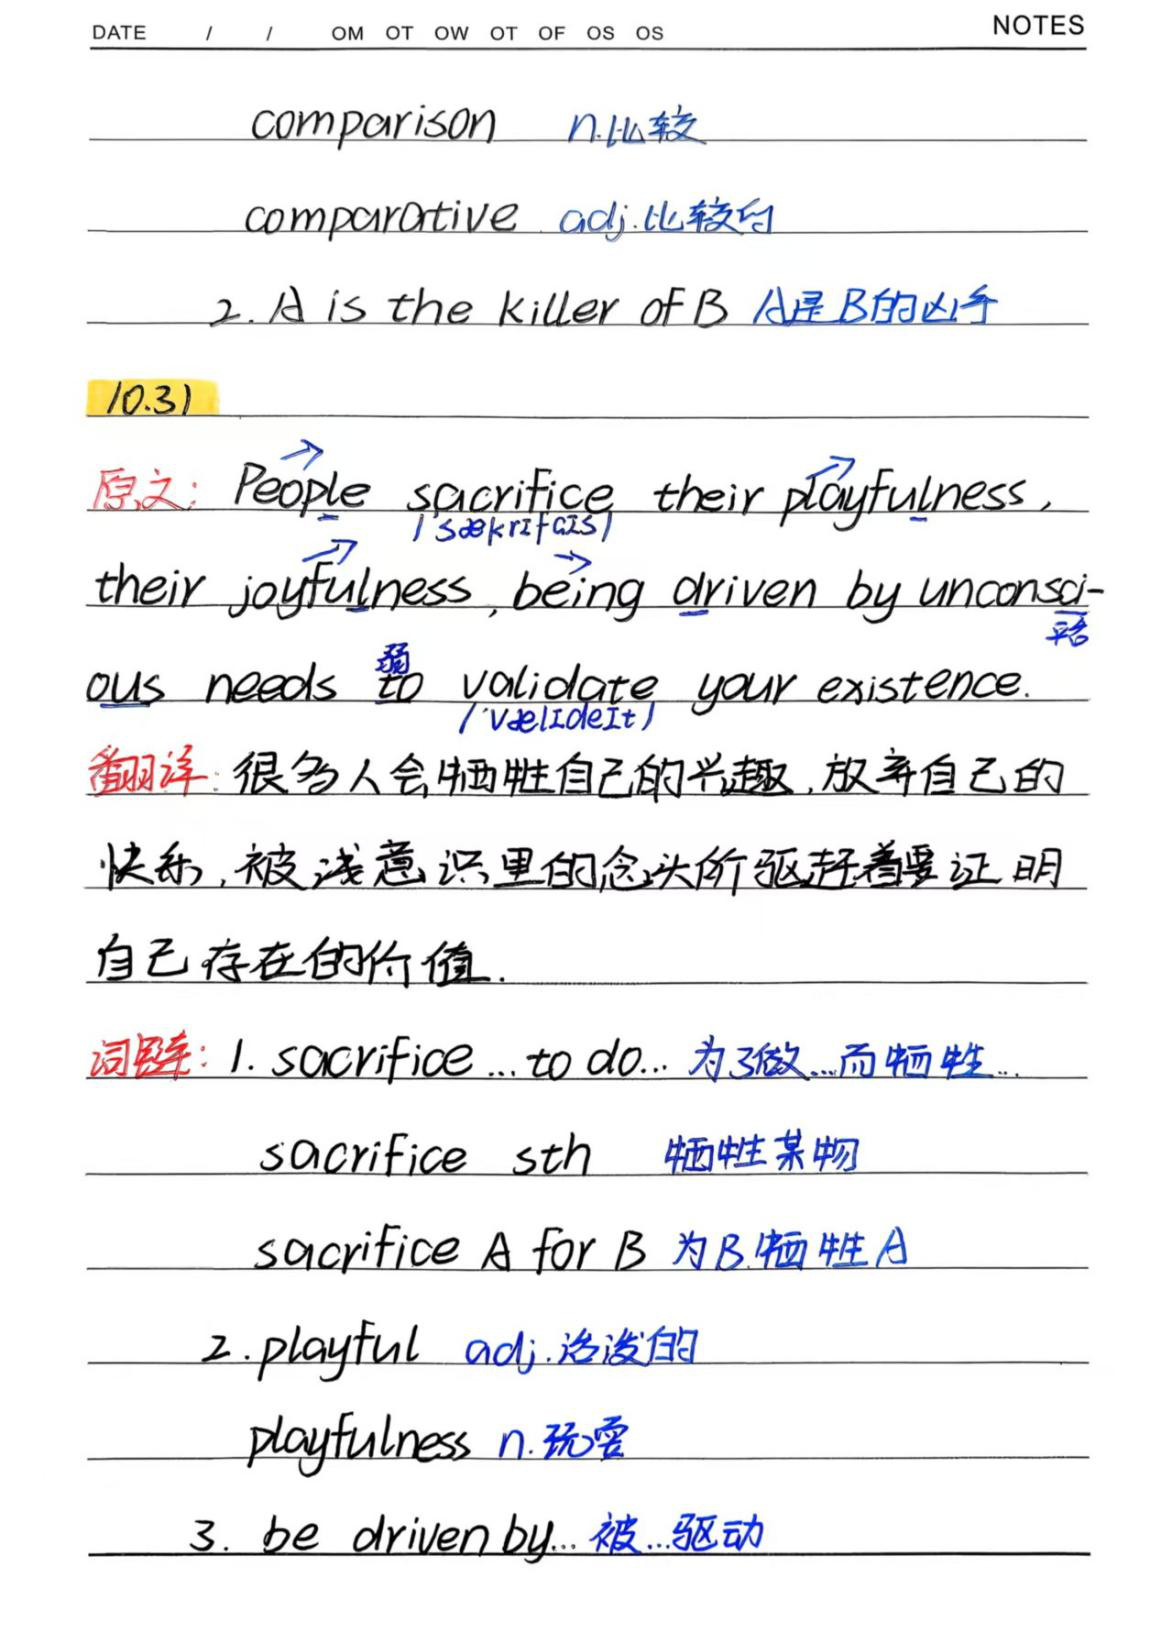 DATE / / OM OT OW OT OF OS OS NOTES
comparison n.比较
comparative adj.比较的
2. A is the killer of B A是B的凶手
10.31
原文: People sacrifice their playfulness,
/sækrɪfaɪs/
their joyfulness, being driven by unconsci-
弱
ous needs to validate your existence.
/ˈvælɪdeɪt/
翻译: 很多人会牺牲自己的兴趣,放弃自己的
快乐,被浅意识里的念头所驱赶着要证明
自己存在的价值.
词链: 1. sacrifice...to do... 为了做...而牺牲...
sacrifice sth 牺牲某物
sacrifice A for B 为B牺牲A
2. playful adj.活泼的
playfulness n.玩耍
3. be driven by... 被...驱动